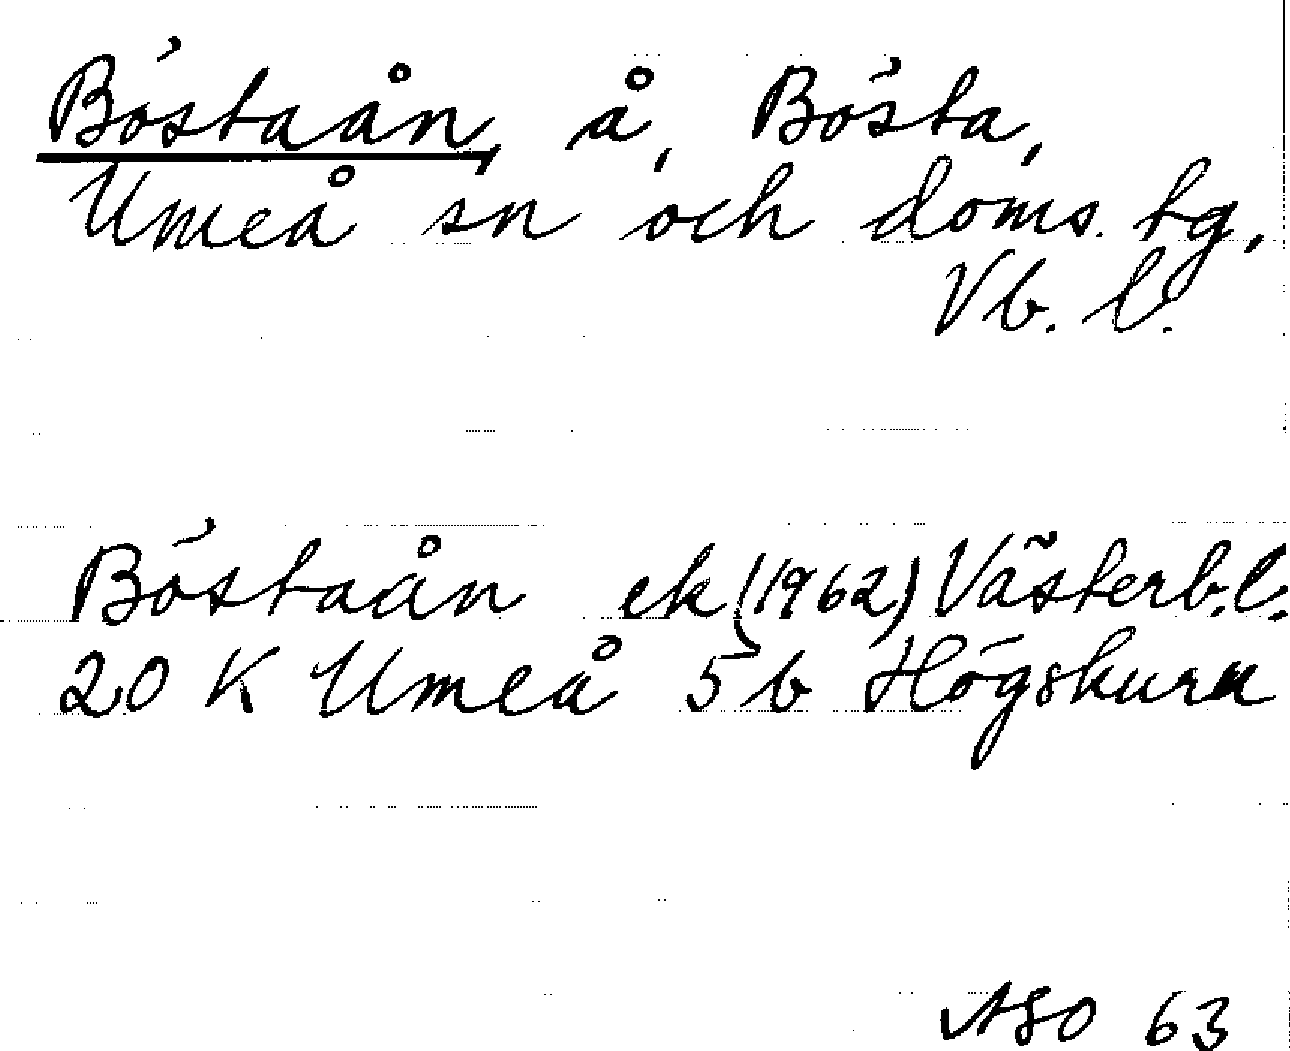 Böstaån, å, Bösta,
Umeå sn och doms. tg,
Vb. l.
Böstaån ek (1962) Västerb. l.
20 K Umeå 5 b Högskuru
63